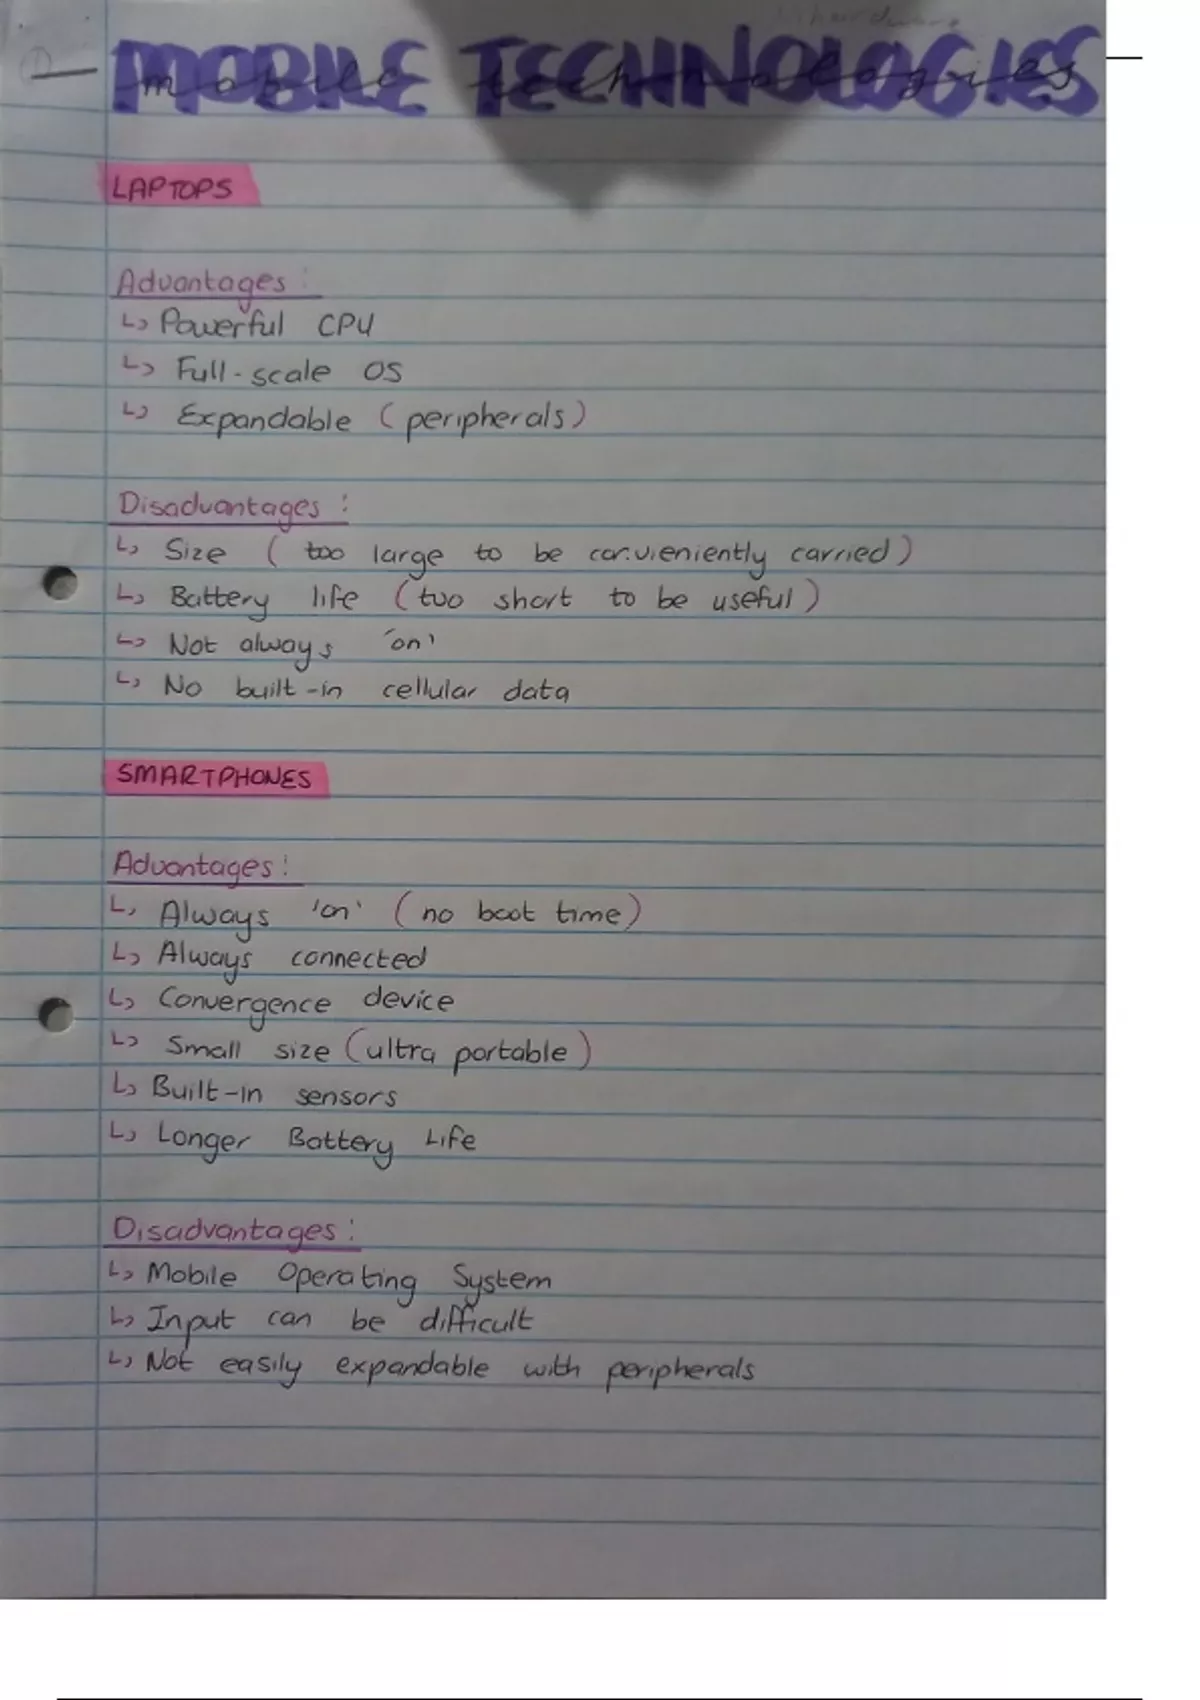 hardware
①
MOBILE TECHNOLOGIES
mobile technologies
LAPTOPS
Advantages:
↳ Powerful CPU
↳ Full-scale OS
↳ Expandable (peripherals)
Disadvantages:
↳ Size (too large to be convieniently carried)
↳ Battery life (too short to be useful)
↳ Not always 'on'
↳ No built-in cellular data
SMARTPHONES
Advantages:
↳ Always 'on' (no boot time)
↳ Always connected
↳ Convergence device
↳ Small size (ultra portable)
↳ Built-in sensors
↳ Longer Battery Life
Disadvantages:
↳ Mobile Operating System
↳ Input can be difficult
↳ Not easily expandable with peripherals